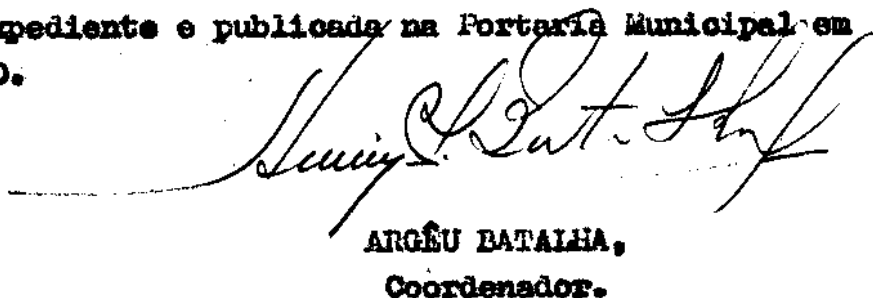 xpediente e publicada na Portaria Municipal em
O.
ARGÊU BATALHA,
Coordenador.